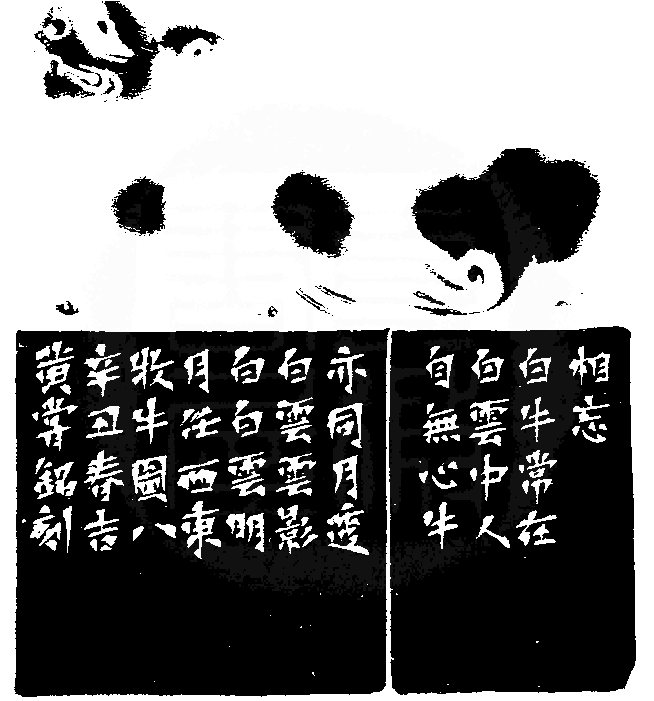 相忘
白牛常在
白雲中人
自無心牛
亦同月透
白雲雲影
白白雲明
月任西東
牧牛圖八
辛丑春吉
黃嘗銘刻